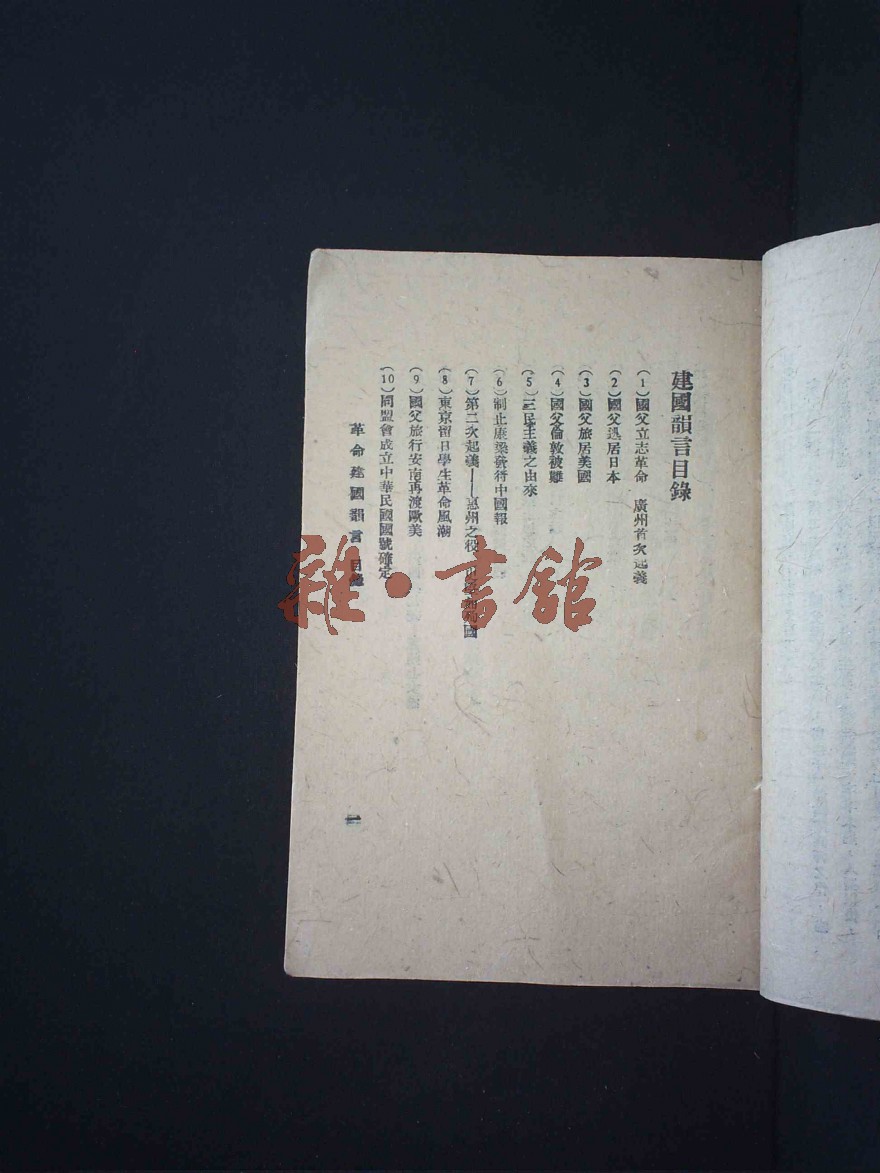 建國韻言目錄
(1)國父立志革命 廣州首次起義
(2)國父退居日本
(3)國父旅居美國
(4)國父倫敦被難
(5)三民主義之由來
(6)制止康梁發行中國報
(7)第二次起義——惠州之役
(8)東京留日學生革命風潮
(9)國父旅行安南再渡歐美
(10)同盟會成立中華民國國號確定
革命建國韻言 目錄
一
雜·書館